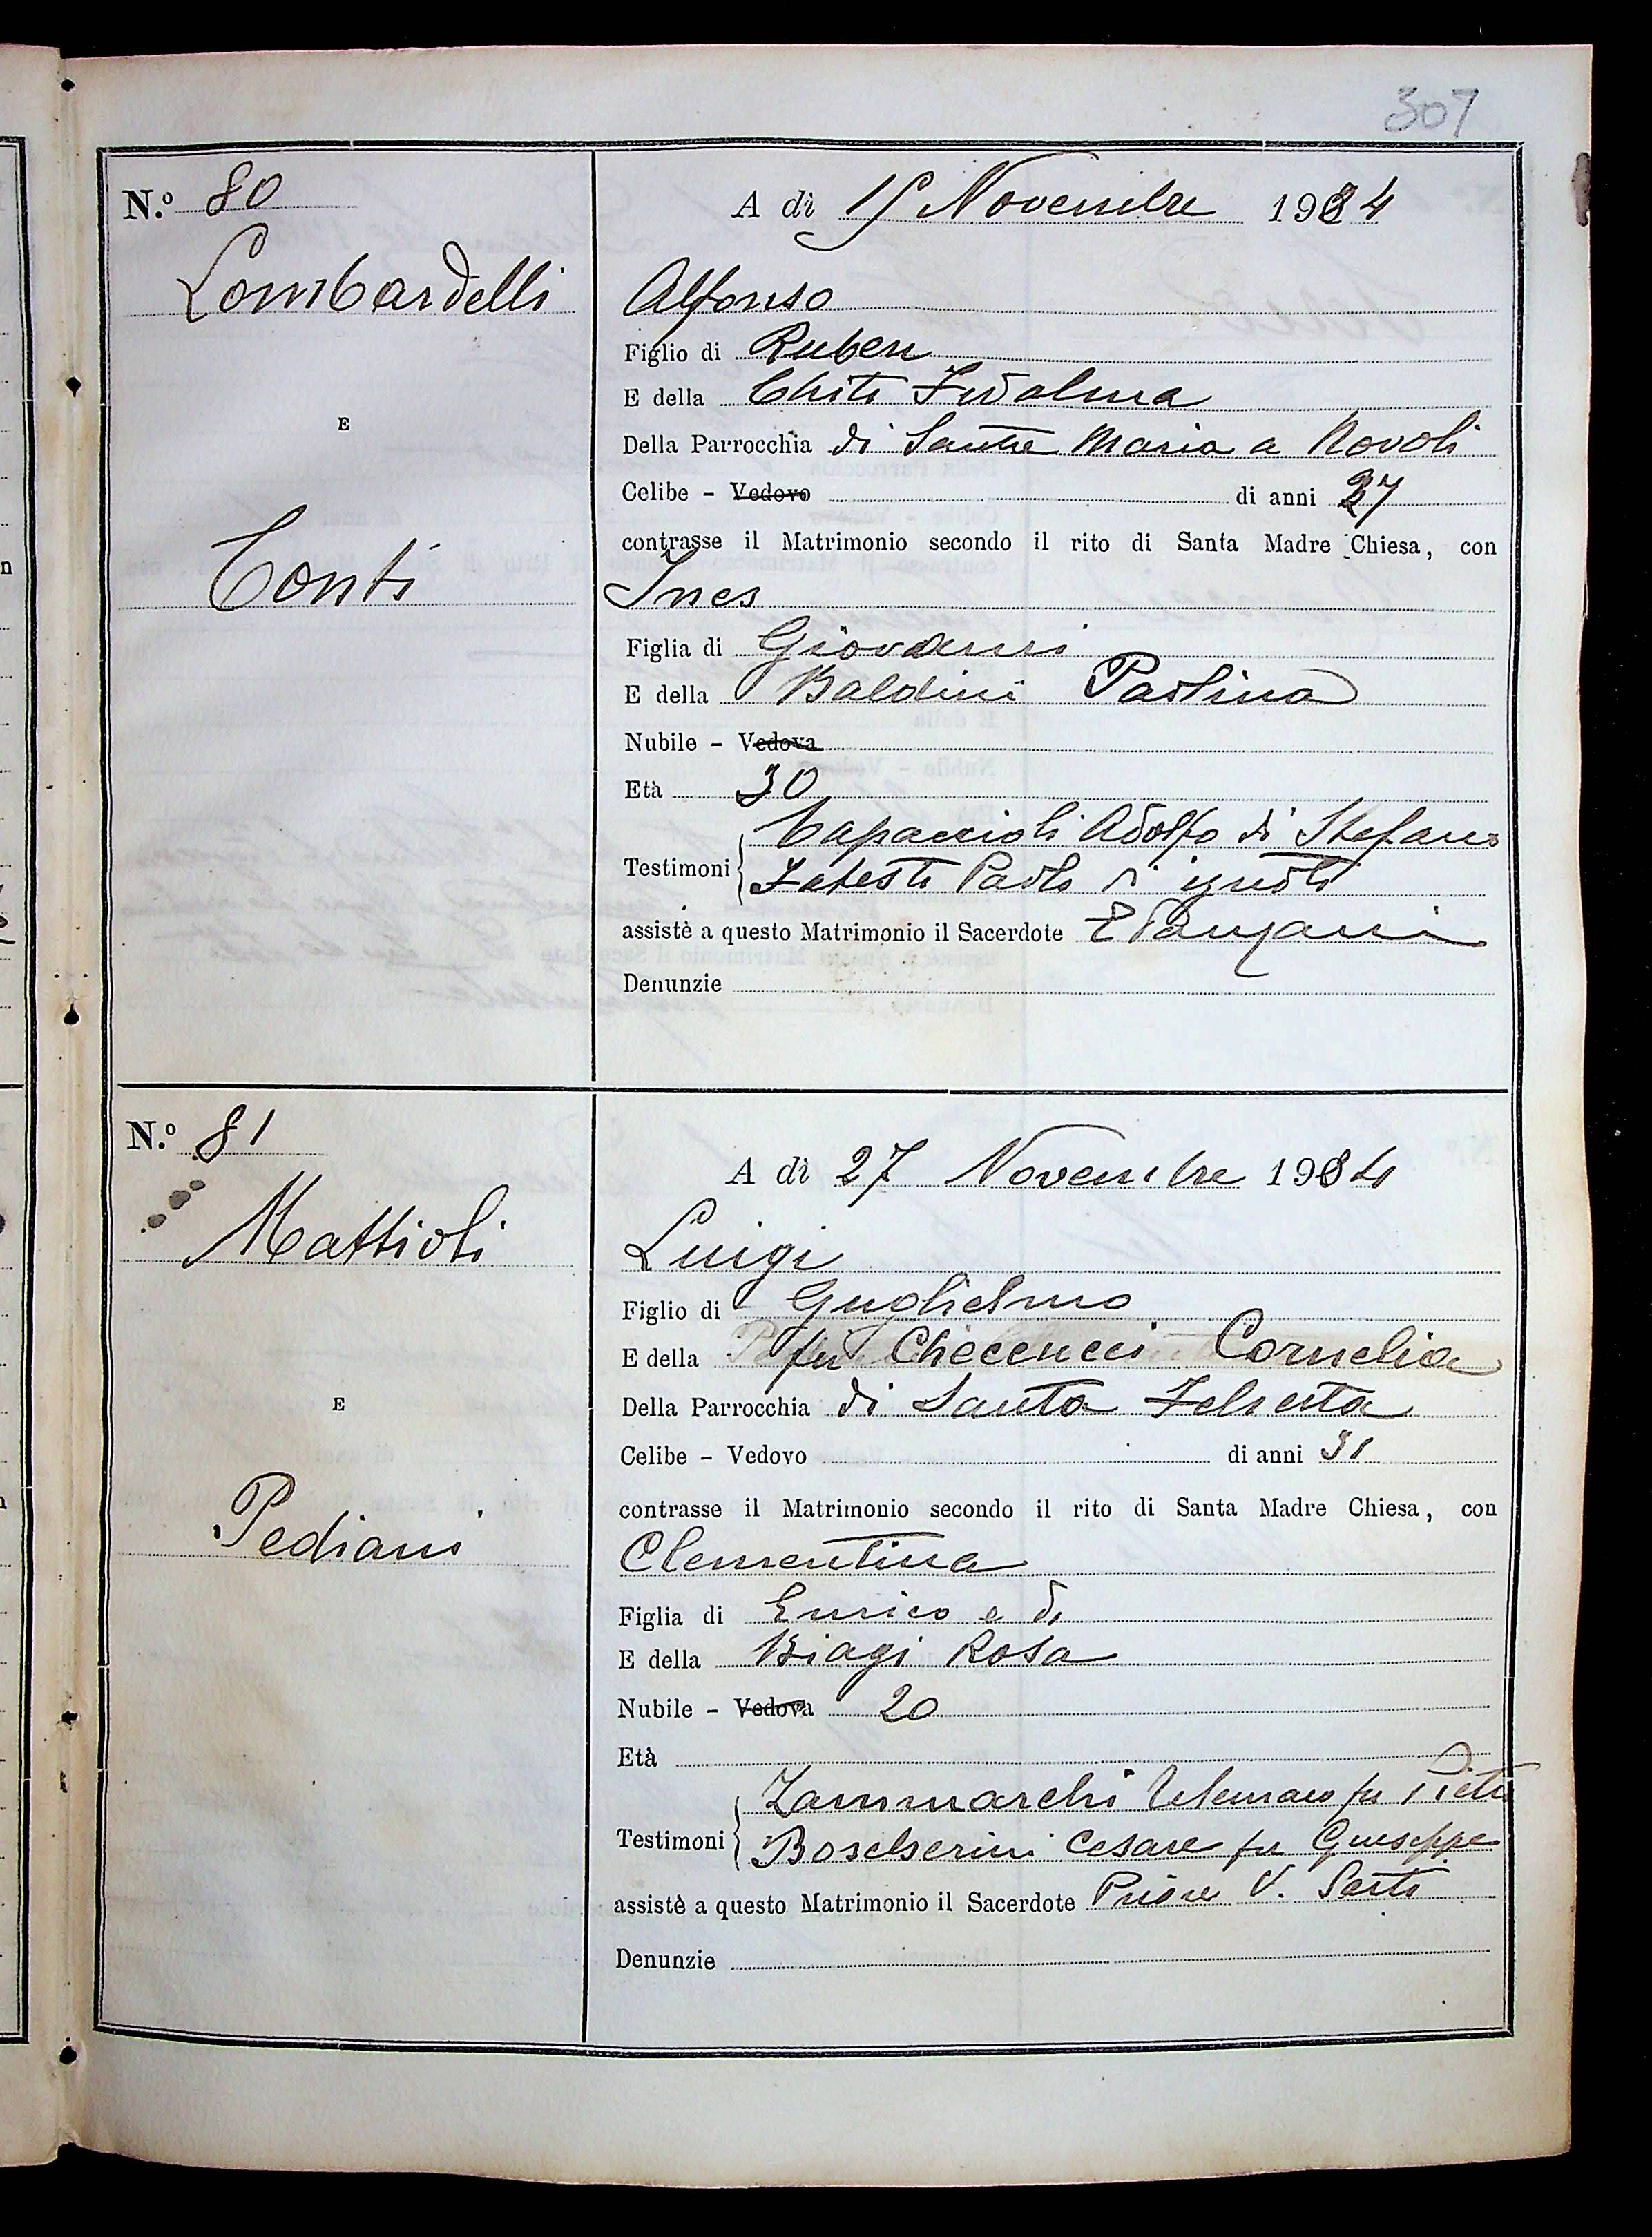 307
N.º 80
A dì 15 Novembre 1934
Lombardelli
Alfonso
Figlio di Ruben
E della Chiti Isvolma
E
Della Parrocchia di Santa Maria a Novoli
Celibe - Vedovo di anni 27
contrasse il Matrimonio secondo il rito di Santa Madre Chiesa, con
Conti
Ines
Figlia di Giovanni
E della Baldini Paolina
Nubile - Vedova
Età 30
Testimoni Capaccioli Adolfo di Stefano
Paolo di ignoti
assistè a questo Matrimonio il Sacerdote E Panzani
Denunzie
N.º 81
A dì 27 Novembre 1934
Mattioli
Luigi
Figlio di Guglielmo
E della fu Checcucci Cornelia
E
Della Parrocchia di Santa Felicita
Celibe - Vedovo di anni 31
contrasse il Matrimonio secondo il rito di Santa Madre Chiesa, con
Pediani
Clementina
Figlia di Enrico e di
E della Biagi Rosa
Nubile - Vedova 20
Età
Testimoni Zammarchi Telemaco fu Pietro
Boscherini Cesare fu Giuseppe
assistè a questo Matrimonio il Sacerdote Priore V. Sarti
Denunzie